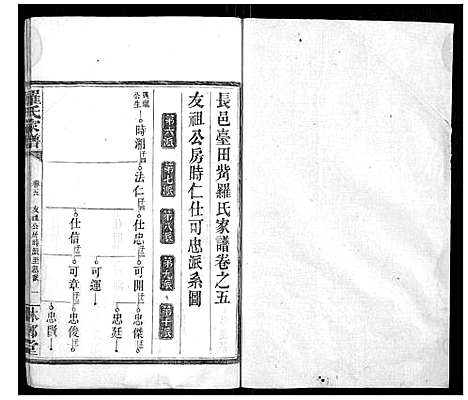 長邑臺田觜羅氏家譜卷之五
友祖公房時仁仕可忠派系圖
第六派 第七派 第八派 第九派 第十派
公生 時湘 法仁 仕忠 可開 忠傑
忠廷
可運
仕信 可章 忠俊
忠賢
羅氏家譜
卷五 友祖公房時派至忠派 一
堂